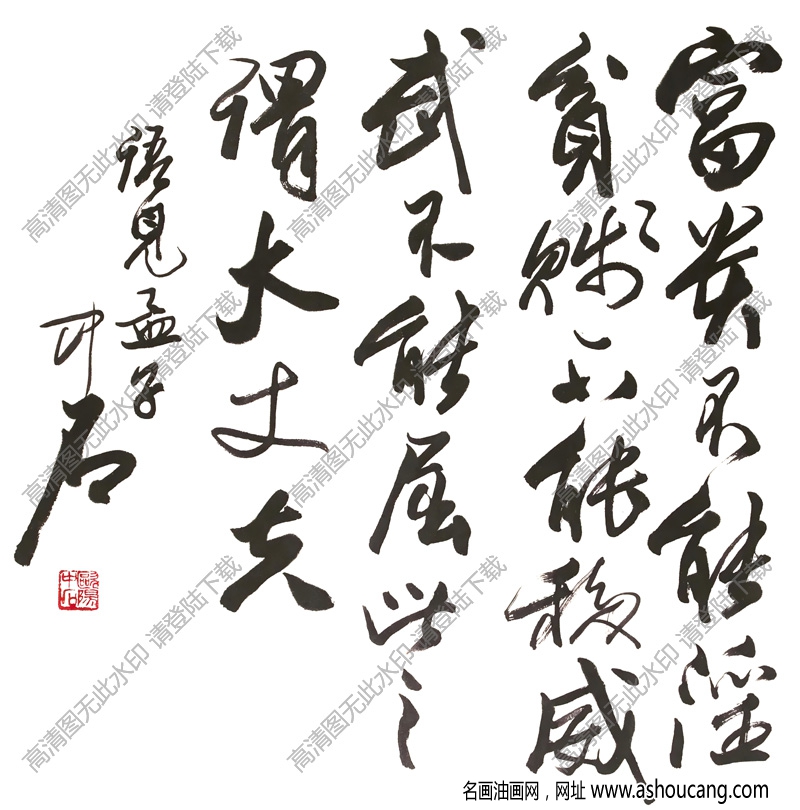 富贵不能淫
贫贱不能移威
武不能屈此之
谓大丈夫
语见孟子
中石
歐陽中石
高清图无此水印 请登陆下载
高清图无此水印 请登陆下载
高清图无此水印 请登陆下载
高清图无此水印 请登陆下载
高清图无此水印 请登陆下载
高清图无此水印 请登陆下载
高清图无此水印 请登陆下载
高清图无此水印 请登陆下载
高清图无此水印 请登陆下载
名画油画网，网址 www.ashoucang.com